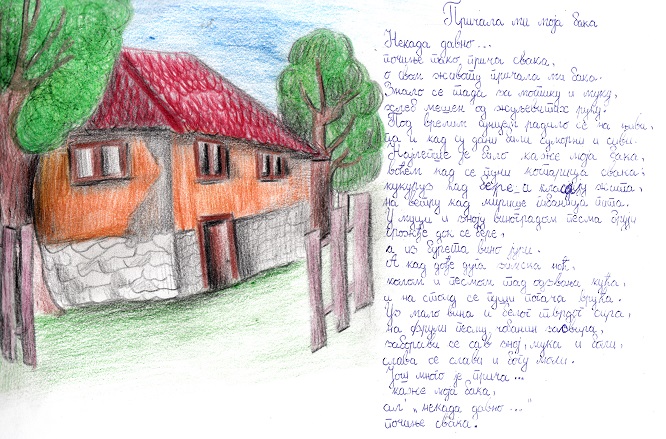 Причала ми моја бака
Некада давно...
почиње тако, прича свака,
о свом животу причала ми бака.
Знало се тада за мотику и муку,
хлеб мешен од жуљевитих руку.
Под врелим сунцем радило се на њиви,
па и кад су дани били суморни и сиви.
Најлепше је било каже моја бака,
кад се пуни котарица свака:
кукуруз кад бере а класају жита,
на ветру кад мирише пита.
У муци и зноју виноградом песма бруји
грожђе док се бере,
а из бурета вино јури.
А кад дође дуга зимска ноћ,
колом и песмом тад одзвања кућа,
и на столу се пуши погача врућа.
Уз мало вина и белог тврдог сира,
на фрули песму, чобанин засвира,
заборави се сав зној, мука и боли,
слава се слави и богу моли.
Још много је прича...
каже моја бака,
ал' „некада давно..."
почиње свака.